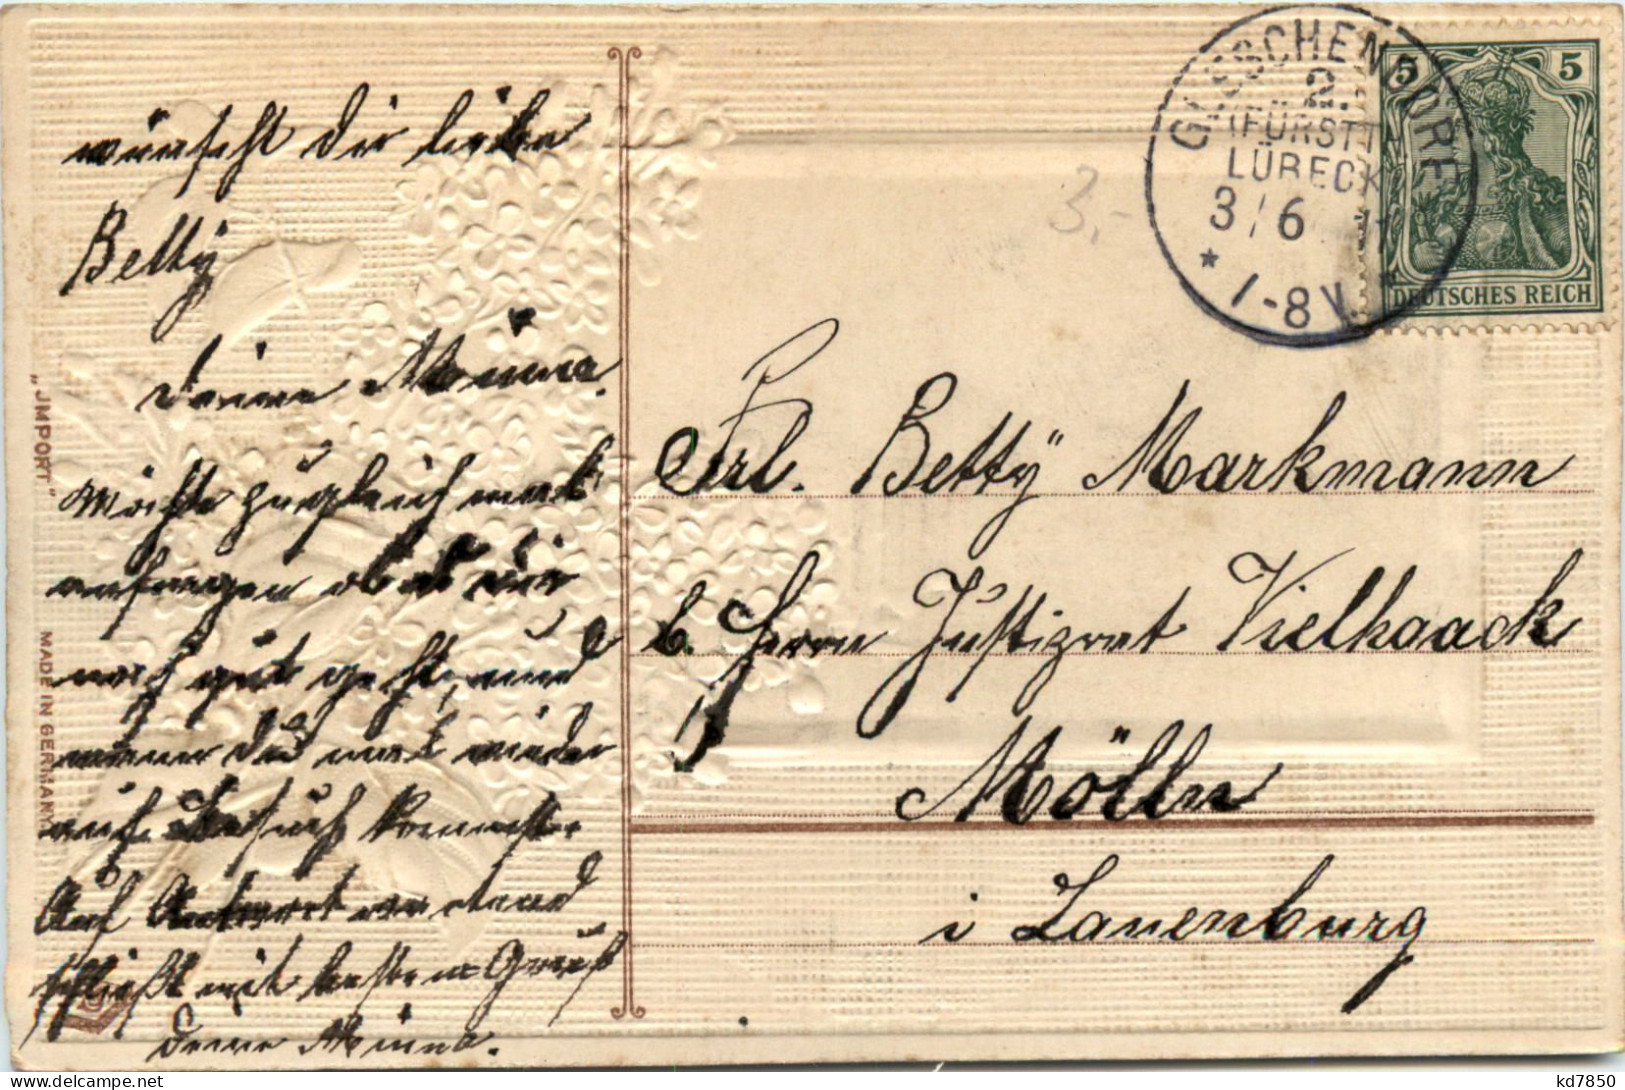 wünscht dir liebe
Betty
deine Minna.
Möchte zugleich mal
anfragen ob es dir
noch gut geht, und
wann du mal wieder
auf Besuch kommst.
Auf Antwort wartend
schließt mit bestem Gruß
deine Minna.
"JMPORT"
MADE IN GERMANY
3,-
GLESCHENDORF
2.
(FÜRSTT.
LÜBECK
3/6
* 1-8 V. *
5 5
DEUTSCHES REICH
Frl. Betty Markmann
b. Herrn Justizrat Vielhaack
Mölln
i Lauenburg
kd7850